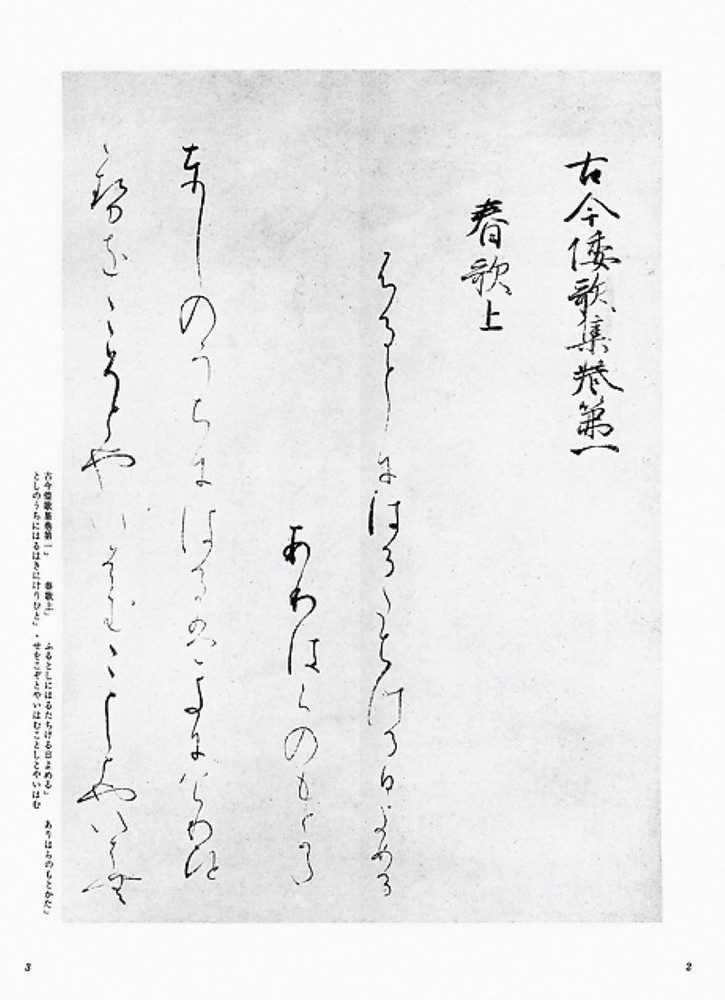 古今倭歌集巻第一
春歌上
ふるとしにはるたちける日よめる
ありはらのもとかた
としのうちにはるはきにけりひと
ゝせをこぞとやいはむことしとやいはむ
古今倭歌集巻第一」 春歌上」 ふるとしにはるたちける日よめる」 ありはらのもとかた」
としのうちにはるはきにけりひと」ゝせをこぞとやいはむことしとやいはむ
2
3